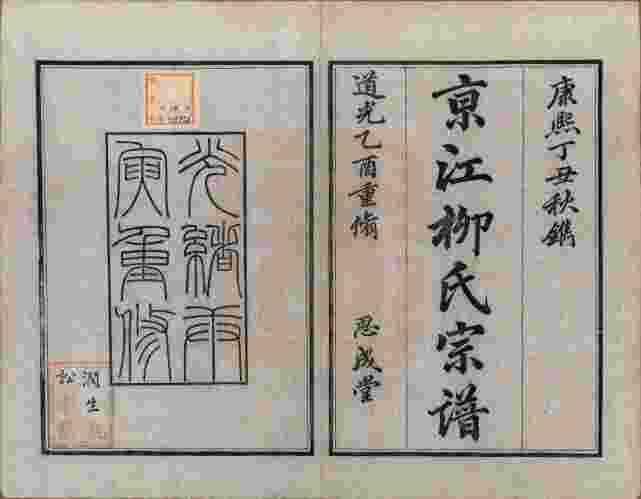 康熙丁丑秋鐫
亰江柳氏宗譜
道光乙酉重脩 思成堂
光緒庚
寅重修
潤生
松